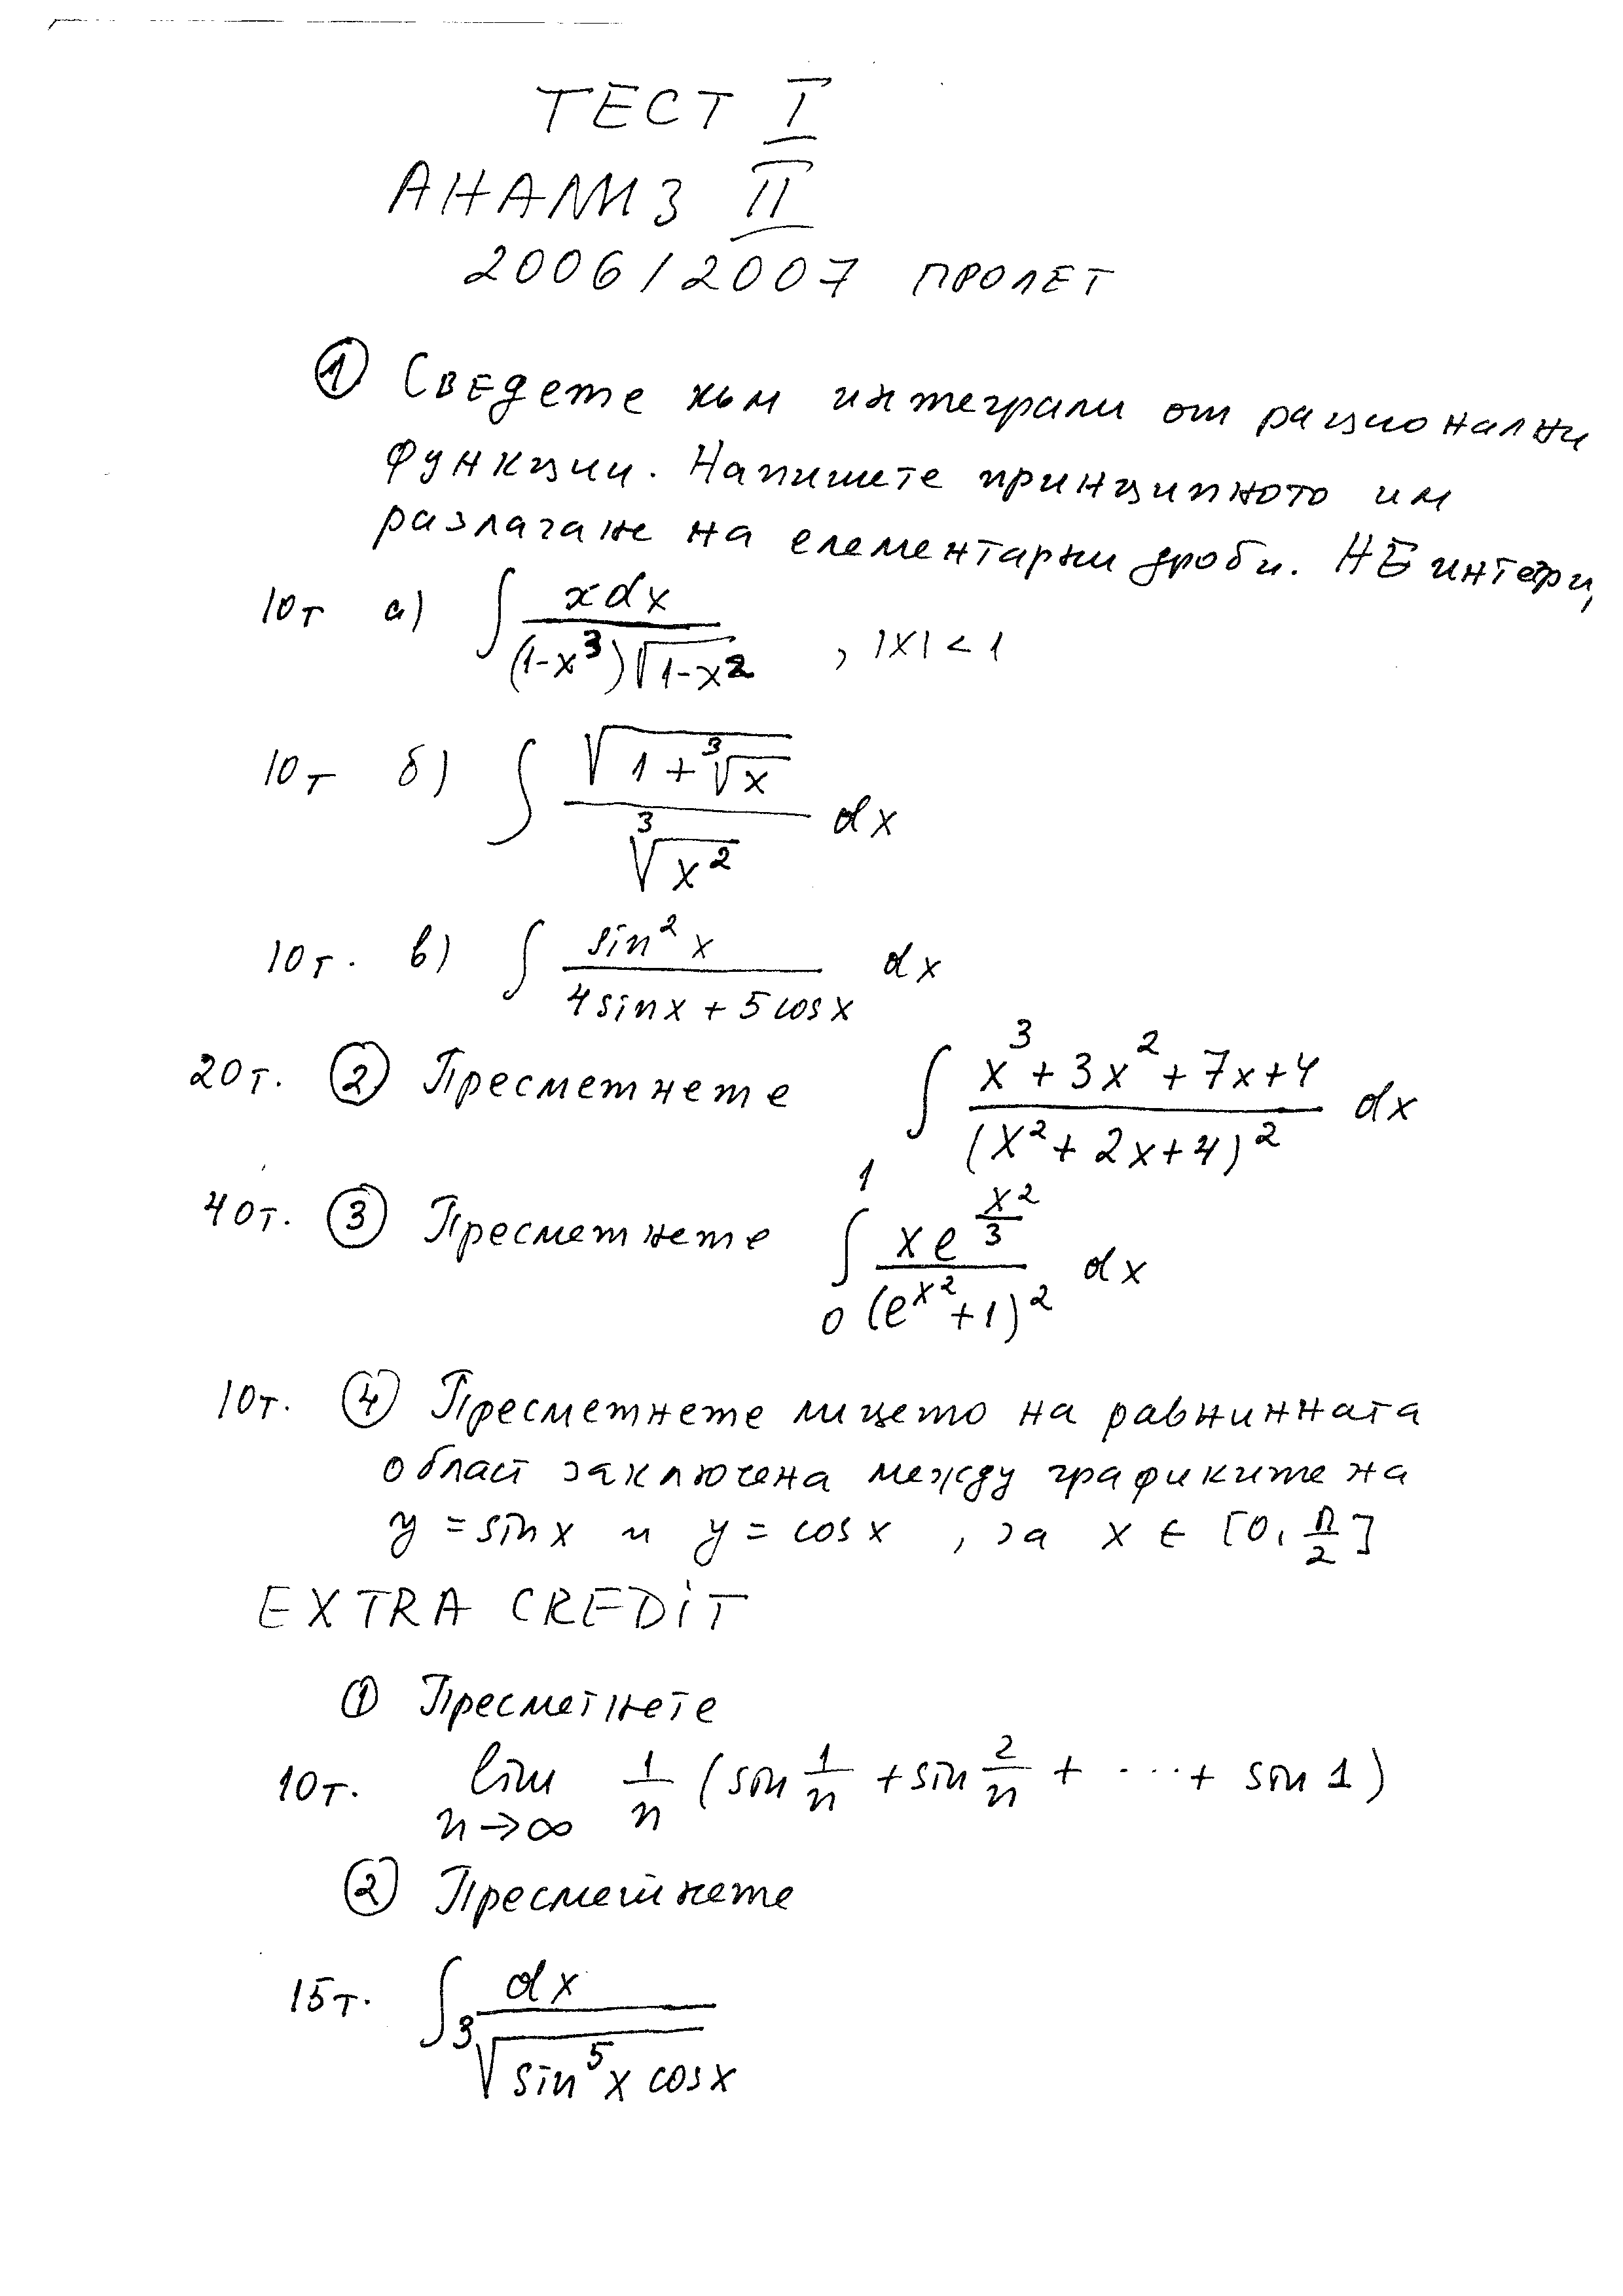 ТЕСТ I
АНАЛИЗ II
2006/2007 ПРОЛЕТ
① Сведете към интеграли от рационални
функции. Напишете принципното им
разлагане на елементарни дроби. НЕ интегри,
10т а) ∫ xdx / (1-x³)√(1-x²) , |x| < 1
10т б) ∫ √(1+∛x) / ∛(x²) dx
10т. в) ∫ sin²x / (4sinx + 5cosx) dx
20т. ② Пресметнете ∫ (x³+3x²+7x+4) / (x²+2x+4)² dx
40т. ③ Пресметнете ∫₀¹ xe^(x²/3) / (e^(x²)+1)² dx
10т. ④ Пресметнете лицето на равнинната
област заключена между графиките на
y = sinx и y = cosx , за x ∈ [0, π/2]
EXTRA CREDiT
① Пресметнете
10т. lim n→∞ 1/n (sin 1/n + sin 2/n + ··· + sin 1)
② Пресметнете
15т. ∫ dx / ∛(sin⁵x cosx)